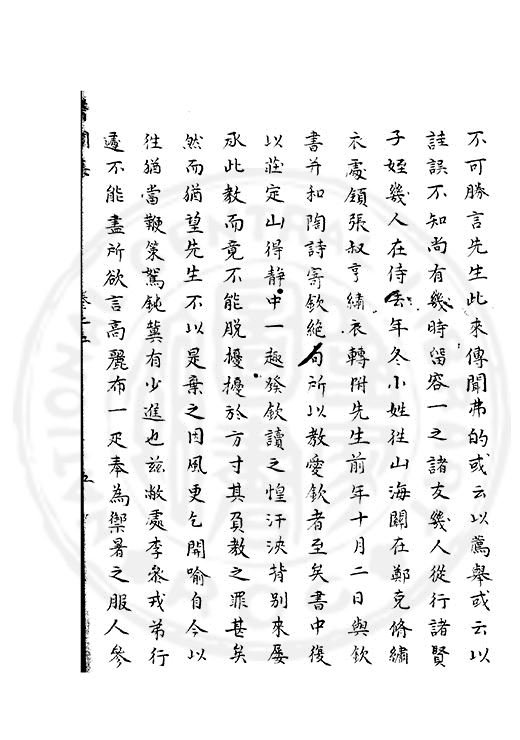 不可勝言先生此來傳聞弗的或云以薦舉或云以
詿誤不知尚有幾時留容一之諸友幾人從行諸賢
子姪幾人在侍去年冬小姪從山海關在鄭克脩繡
衣處領張叔亨繡衣轉附先生前年十月二日與欽
書并和陶詩寄欽絶句所以教愛欽者至矣書中復
以莊定山得静中一趣發欽讀之惶汗浹背别來屡
承此教而竟不能脱擾擾於方寸其負教之罪甚矣
然而猶望先生不以是棄之因風更乞開喻自今以
徃猶當鞭策駑鈍冀有少進也兹敝處李叅戎弟行
遽不能盡所欲言高麗布一疋奉為禦暑之服人參
醫閭集 卷二十五 五